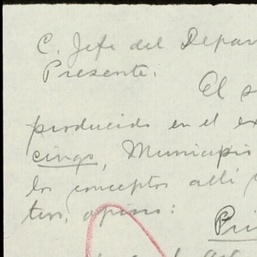 C. Jefe del Depar
Presente.
El s
producido en el ex
cingo, Municipio
los conceptos allí
tivo, opino:
Pri